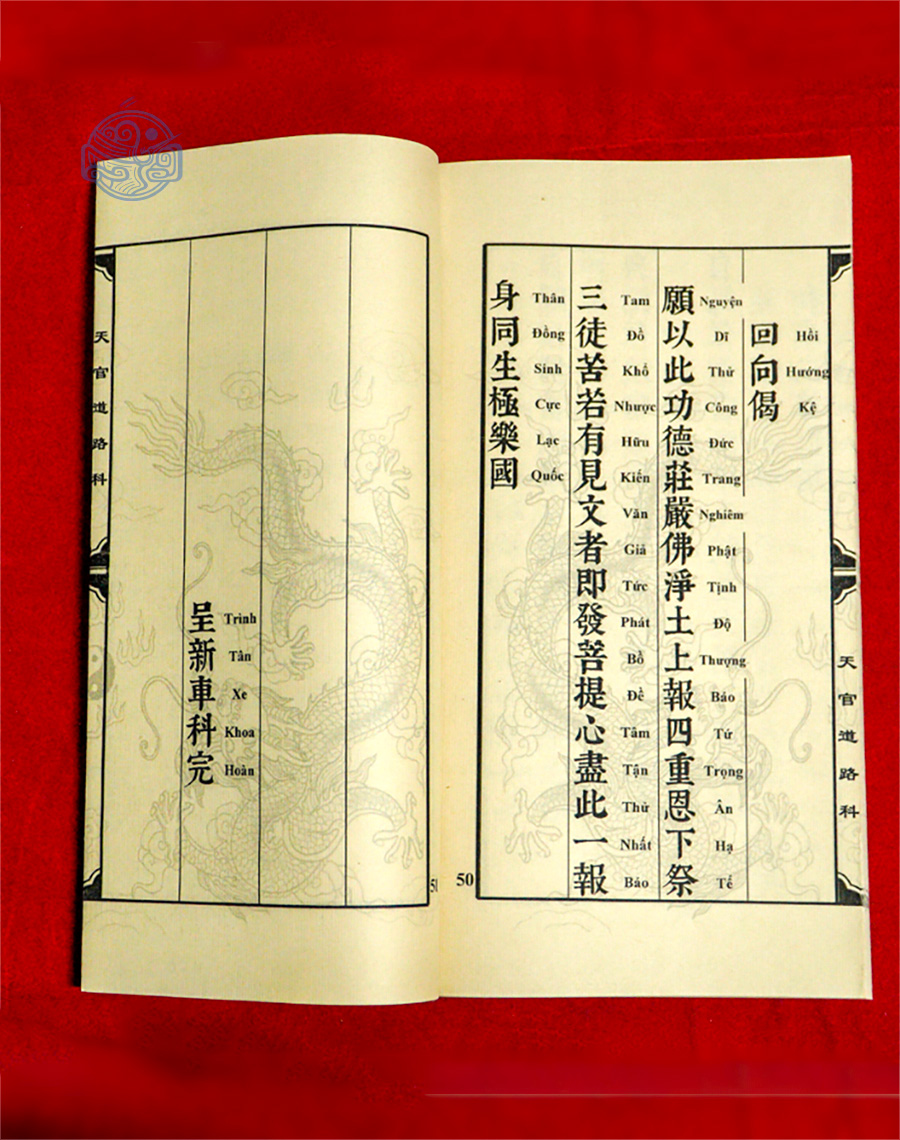 回向偈
Hồi Hướng Kệ
願以此功德莊嚴佛淨土上報四重恩下祭
Nguyện Dĩ Thử Công Đức Trang Nghiêm Phật Tịnh Độ Thượng Báo Tứ Trọng Ân Hạ Tế
三徒苦若有見文者即發菩提心盡此一報
Tam Đồ Khổ Nhược Hữu Kiến Văn Giả Tức Phát Bồ Đề Tâm Tận Thử Nhất Báo
身同生極樂國
Thân Đồng Sinh Cực Lạc Quốc
天官道路科
50
呈新車科完
Trình Tân Xe Khoa Hoàn
天官道路科
51